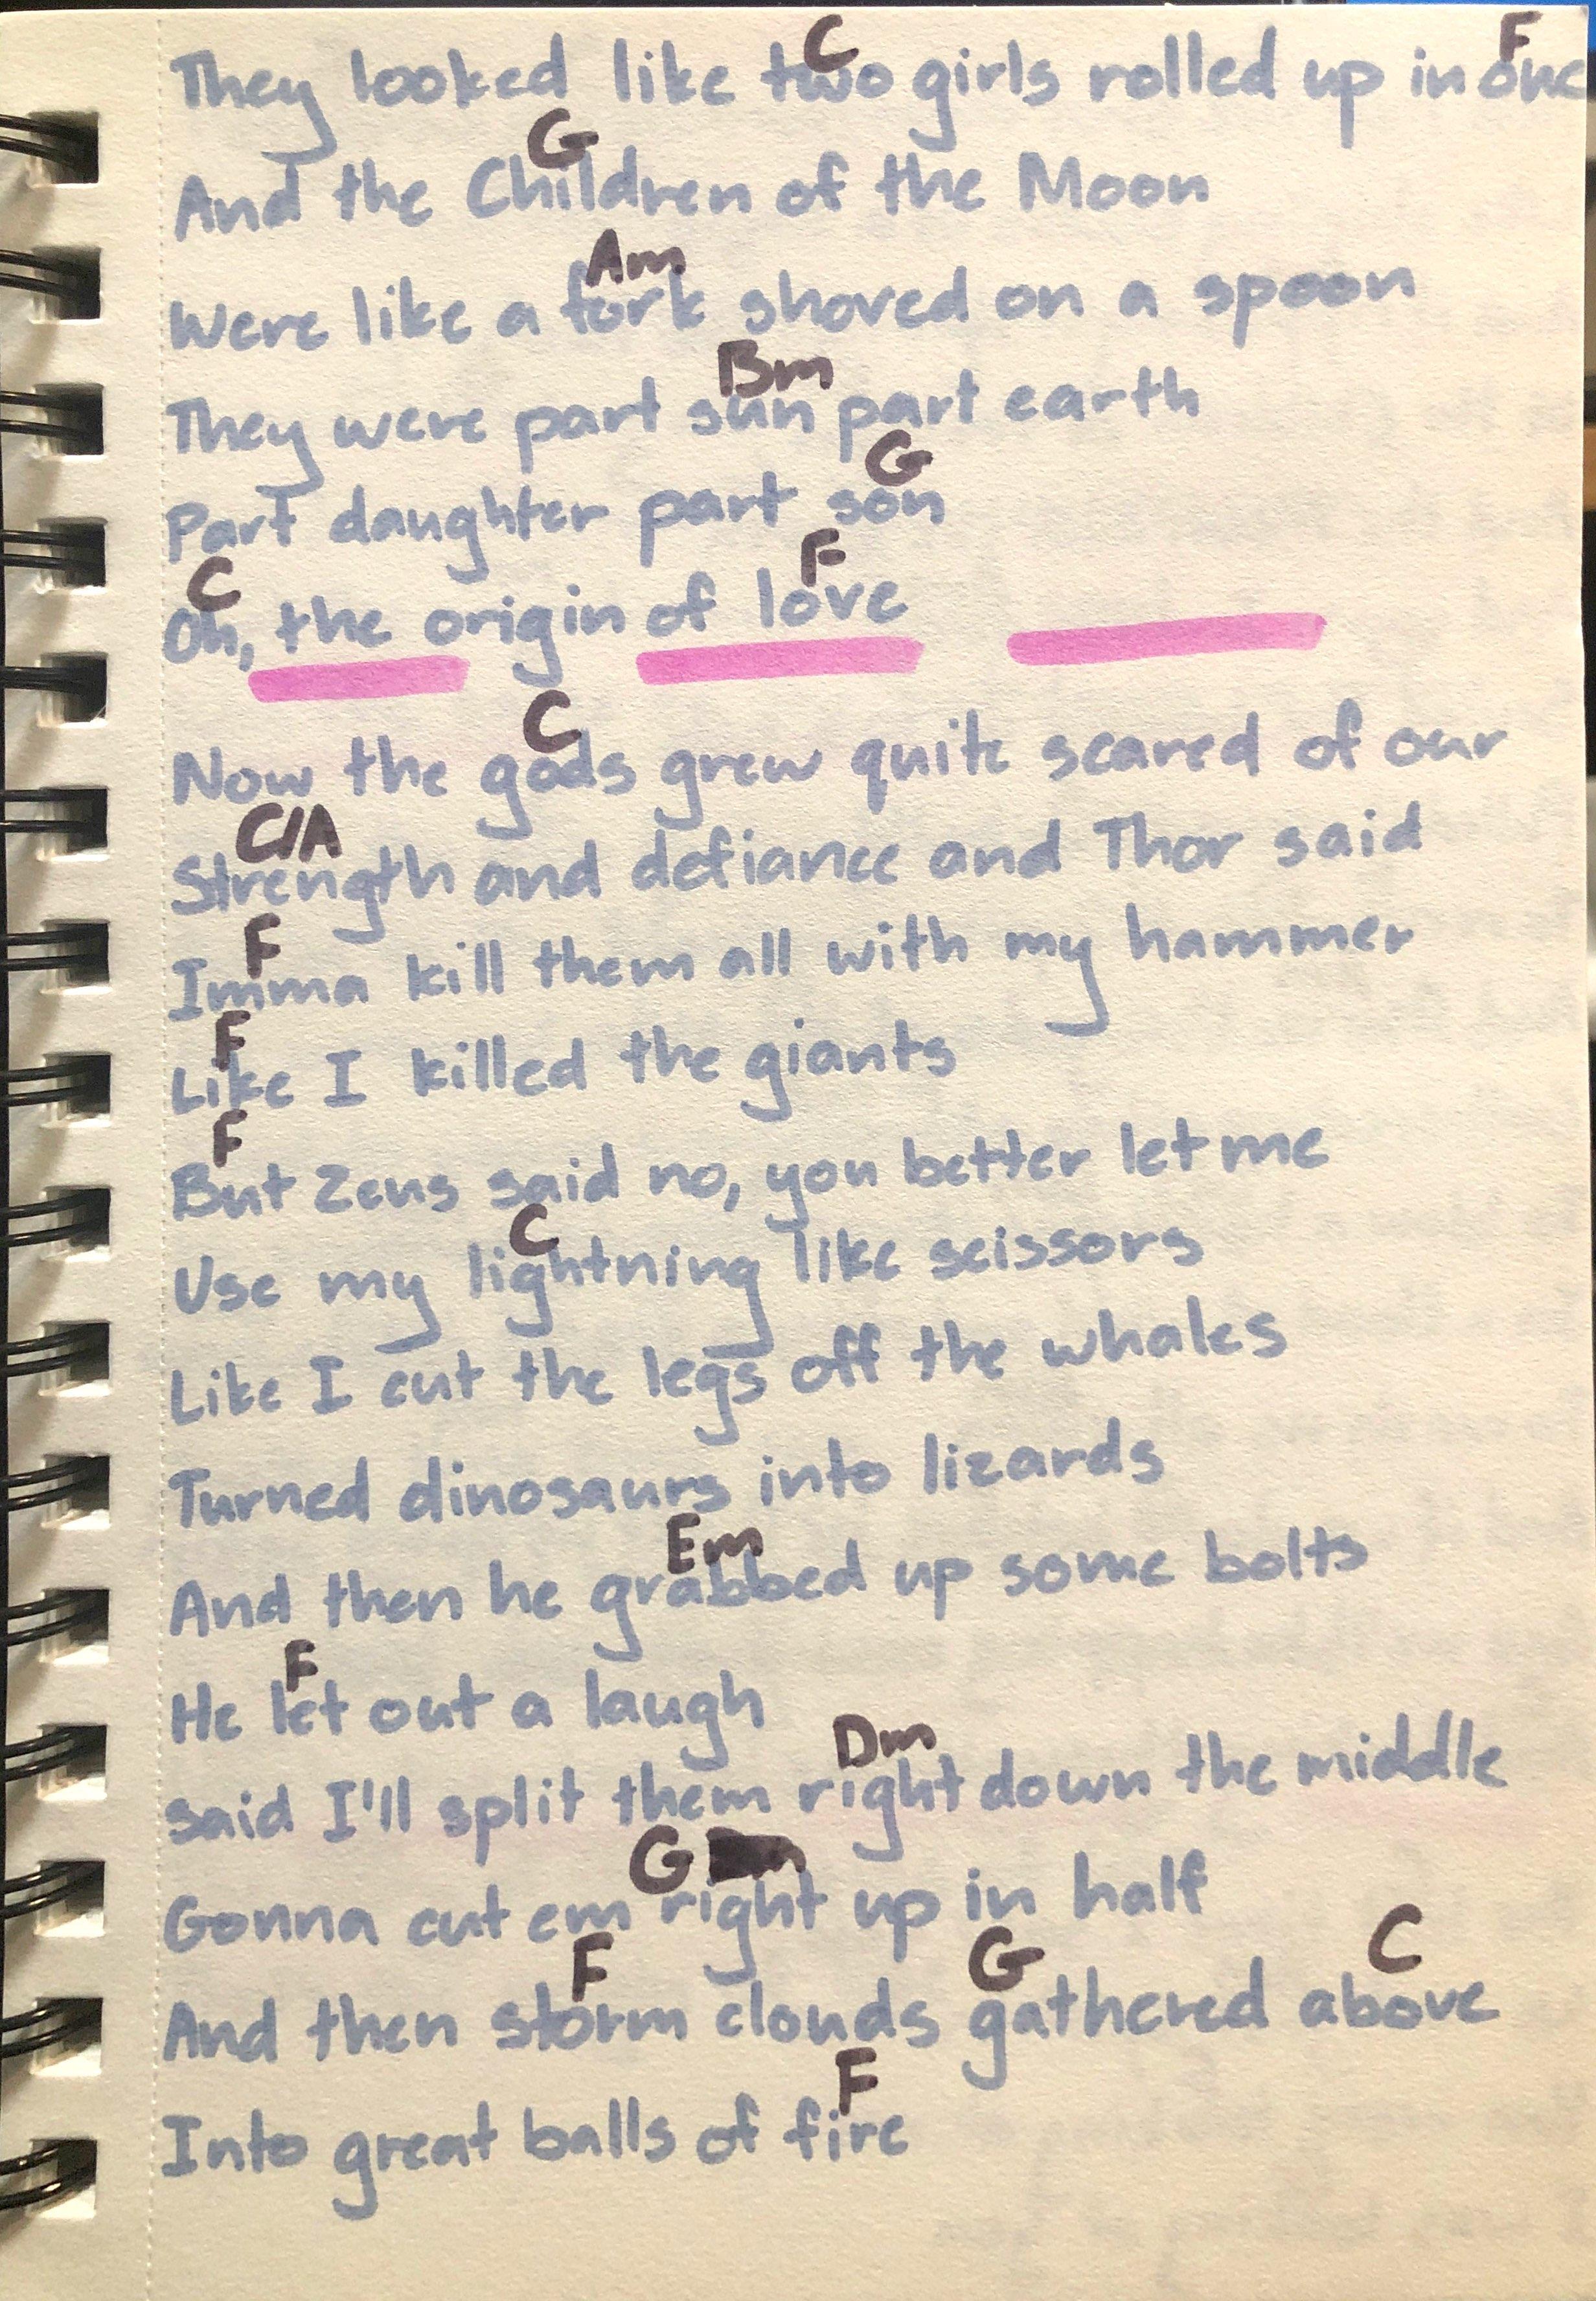 C F
They looked like two girls rolled up in one
G
And the Children of the Moon
Am
Were like a fork shoved on a spoon
Bm
They were part sun part earth
G
Part daughter part son
C F
Oh, the origin of love
C
Now the gods grew quite scared of our
C/A
Strength and defiance and Thor said
F
Imma kill them all with my hammer
F
Like I killed the giants
F
But Zeus said no, you better let me
C
Use my lightning like scissors
Like I cut the legs off the whales
Turned dinosaurs into lizards
Em
And then he grabbed up some bolts
F
He let out a laugh
Dm
said I'll split them right down the middle
G
Gonna cut em right up in half
F G C
And then storm clouds gathered above
F
Into great balls of fire